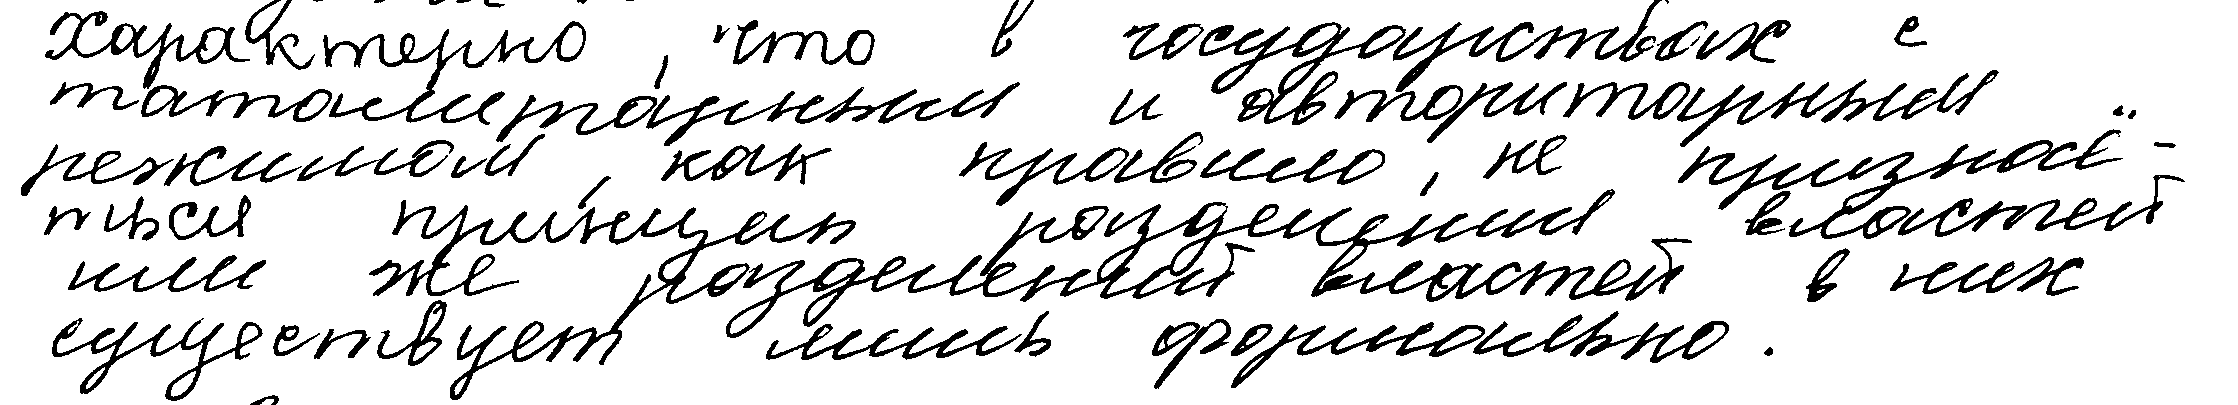 Характерно, что в государствах с
татолитарным и авторитарным
режимом, как правило, не признаё-
ться принцип разделения властей
или же разделений властей в них
существует лишь формально.